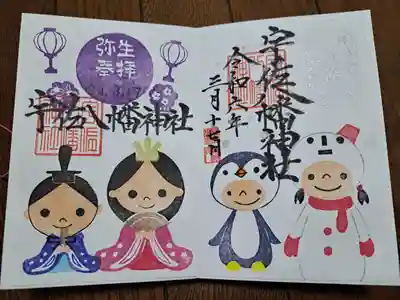 弥生
奉拝
宇佐八幡神社
宇佐八幡神社
令和六年
三月十七日